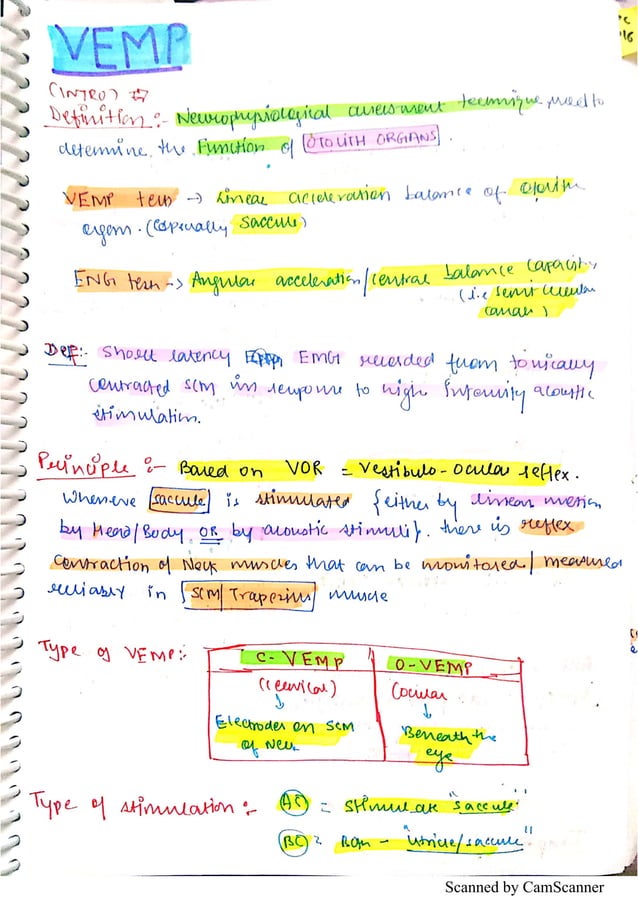 VEMP
(INTRO)
Definition :- Neurophysiological assessment technique, used to
determine the Function of OTOLITH ORGANS.
VEMP test → Linear acceleration balance of Otolith
organ. (especially saccule)
ENG test -> Angular acceleration/central balance capacity
(i.e semi circular
canal)
Def:- Short latency EMG recorded from tonically
contracted SCM in response to high intensity acoustic
stimulation.
Principle :- Based on VOR = Vestibulo-ocular reflex.
Whenever saccule is stimulated {either by linear motion
by Head/Body OR by acoustic stimuli}. there is reflex
contraction of Neck muscles that can be monitored/measured
reliably in SCM/Trapezius muscle
Type of VEMP:- C-VEMP O-VEMP
(cervical) Ocular
↓ ↓
Electrodes on SCM Beneath the
of Neck eye
Type of stimulation:- AC = stimulate "saccule"
BC = Both - "utricle/saccule"
Scanned by CamScanner